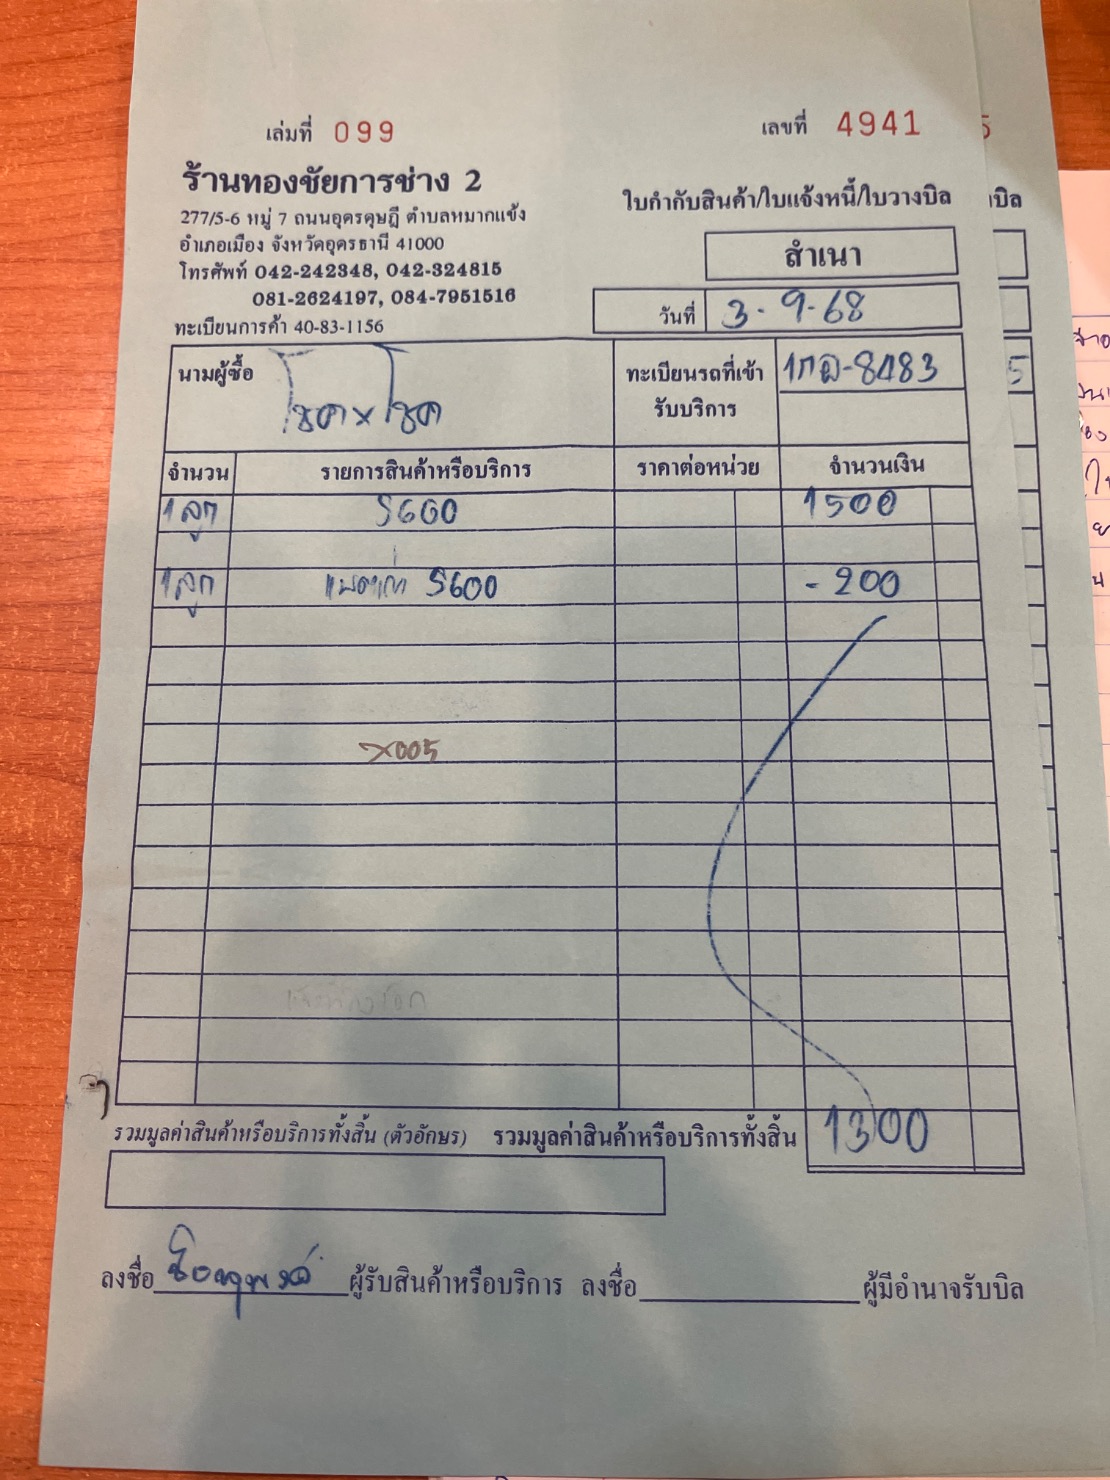 เล่มที่ 099
เลขที่ 4941
ร้านทองชัยการช่าง 2
277/5-6 หมู่ 7 ถนนอุดรดุษฎี ตำบลหมากแข้ง
อำเภอเมือง จังหวัดอุดรธานี 41000
โทรศัพท์ 042-242348, 042-324815
081-2624197, 084-7951516
ทะเบียนการค้า 40-83-1156
ใบกำกับสินค้า/ใบแจ้งหนี้/ใบวางบิล
สำเนา
วันที่ 3-9-68
นามผู้ซื้อ โชค x โชค
ทะเบียนรถที่เข้ารับบริการ 8483
จำนวน รายการสินค้าหรือบริการ ราคาต่อหน่วย จำนวนเงิน
1 ลูก S600 1500
1 ลูก แบตเก่า S600 -200
X005
รวมมูลค่าสินค้าหรือบริการทั้งสิ้น (ตัวอักษร) รวมมูลค่าสินค้าหรือบริการทั้งสิ้น 1300
ลงชื่อ ผู้รับสินค้าหรือบริการ ลงชื่อ ผู้มีอำนาจรับบิล